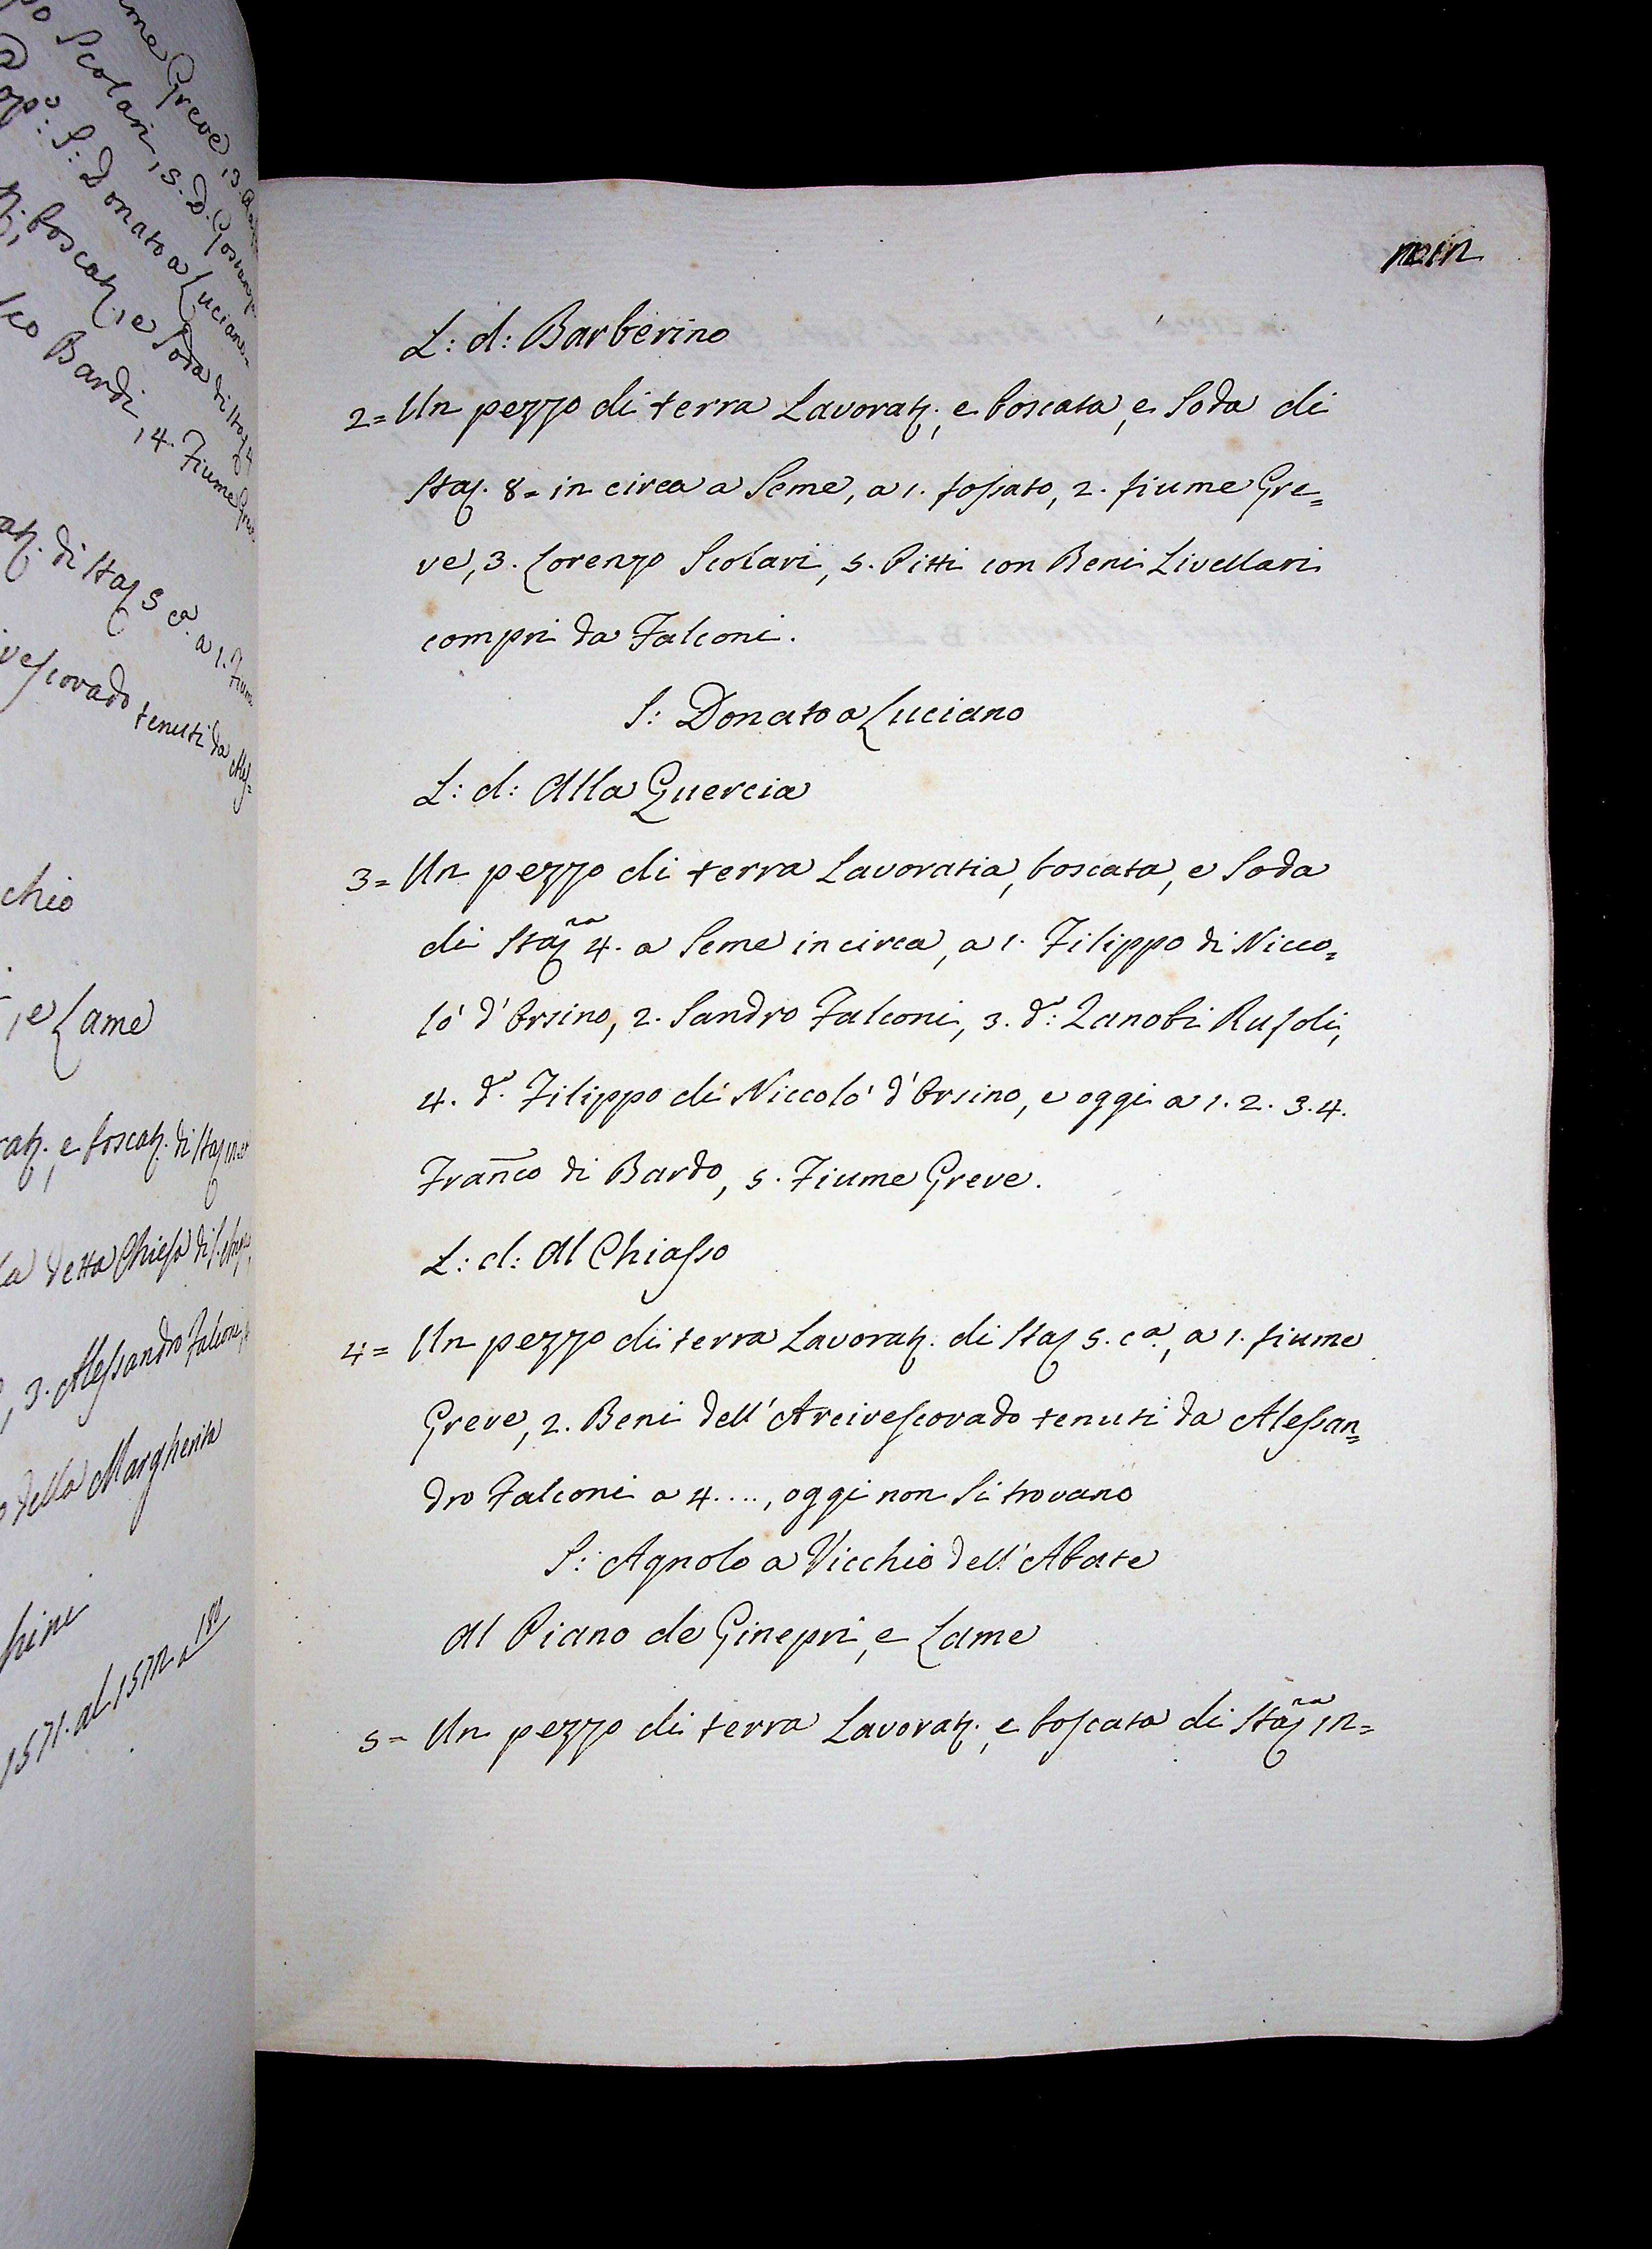 me Greve, 3.
po Scolari, 5. D. Gostanza
op.º: S: Donato a Luciano
boscatª, e Soda di Staj 4
sco Bardi, 4. Fiume Greve
atª. di Staj 5 cª. a 1. Fiume
vescovado tenuti da Ales=
chio
, e Lame
ratª., e boscatª. di Staj
la detta Chiesa di S.
, 3. Alessandro Falconi,
della Margherita
hini
1571. al 1572 a 180
L: d: Barberino
2= Un pezzo di terra Lavoratª., e boscata, e Soda di
Staj. 8= in circa a Seme, a 1. fossato, 2. fiume Gre=
ve, 3. Lorenzo Scolari, 5. Pitti con Beni Livellari
compri da Falconi.
S: Donato a Luciano
L: d: Alla Quercia
3= Un pezzo di terra Lavoratia, boscata, e Soda
di Stajra 4. a Seme in circa, a 1. Filippo di Nicco=
lò d'Orsino, 2. Sandro Falconi, 3. dº: Zanobi Rusoli,
4. dº. Filippo di Niccolò d'Orsino, e oggi a 1. 2. 3. 4.
Franco di Bardo, 5. Fiume Greve.
L: d: Al Chiasso
4= Un pezzo di terra Lavoratª. di Staj 5. cª., a 1. fiume
Greve, 2. Beni dell'Arcivescovado tenuti da Alessan=
dro Falconi a 4...., oggi non Si trovano
S: Agnolo a Vicchio dell'Abate
Al Piano de Ginepri, e Lame
5= Un pezzo di terra Lavoratª., e boscata di Stajra 12=